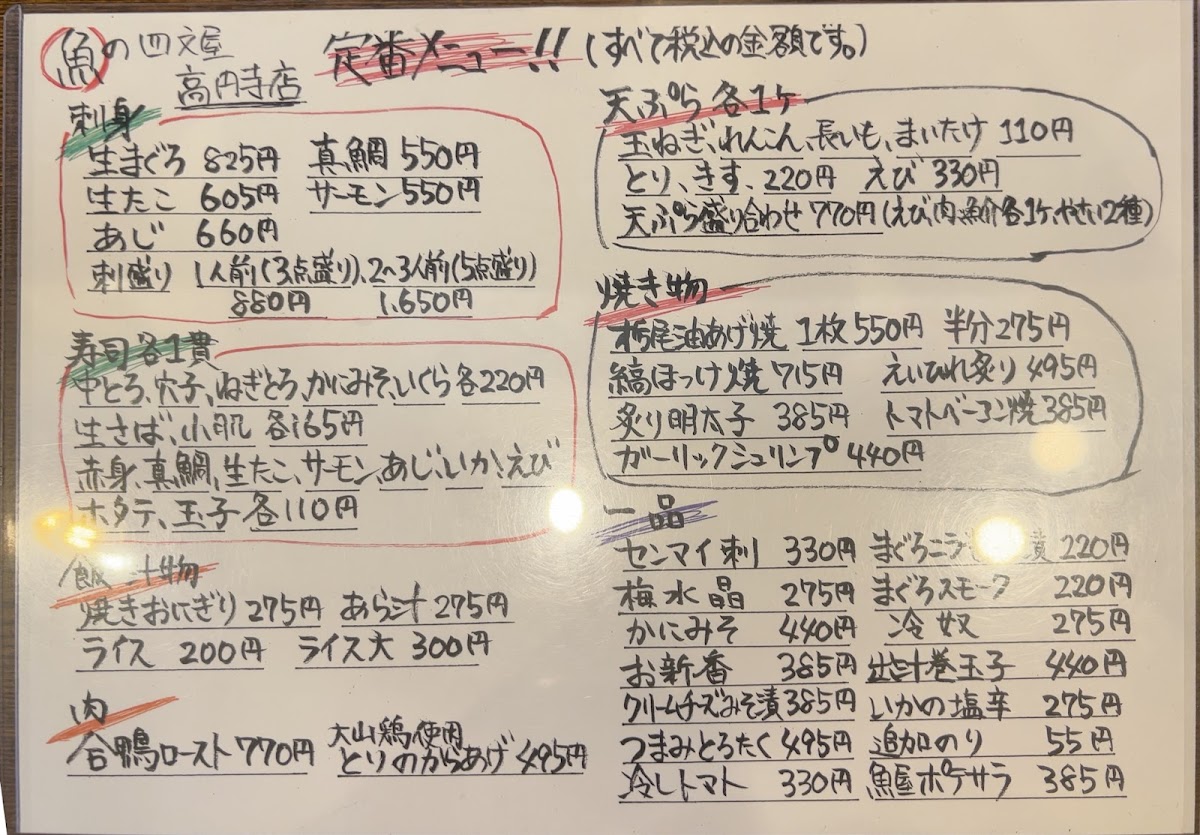 魚の四文屋
高円寺店
定番メニュー!! (すべて税込の金額です。)
刺身
生まぐろ 825円 真鯛 550円
生たこ 605円 サーモン 550円
あじ 660円
刺盛り 1人前(3点盛り)、2~3人前(5点盛り)
880円 1,650円
寿司各1貫
中とろ、穴子、ねぎとろ、かにみそ、いくら 各220円
生さば、小肌 各165円
赤身、真鯛、生たこ、サーモン、あじ、いか、えび
ホタテ、玉子 各110円
飯 汁物
焼きおにぎり 275円 あら汁 275円
ライス 200円 ライス大 300円
肉
合鴨ロースト 770円
大山鶏使用
とりのからあげ 495円
天ぷら 各1ケ
玉ねぎ、れんこん、長いも、まいたけ 110円
とり、きす、220円 えび 330円
天ぷら盛り合わせ 770円 (えび、肉、魚介各1ケ、やさい2種)
焼き物
栃尾油あげ焼 1枚 550円 半分 275円
縞ほっけ焼 715円 えいひれ炙り 495円
炙り明太子 385円 トマトベーコン焼 385円
ガーリックシュリンプ 440円
一品
センマイ刺 330円 まぐろニラ 漬 220円
梅水晶 275円 まぐろスモーク 220円
かにみそ 440円 冷奴 275円
お新香 385円 出汁巻玉子 440円
クリームチーズみそ漬 385円 いかの塩辛 275円
つまみとろたく 495円 追加のり 55円
冷しトマト 330円 魚屋ポテサラ 385円